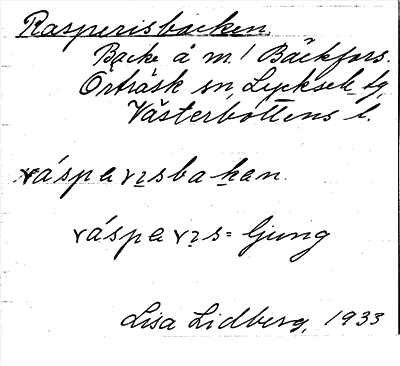 Rasperisbacken.
Backe å m./ Bäckfors.
Örträsk sn, Lycksele lg,
Västerbottens l.
ráspərɪsbakan.
ráspərɪs = ljung
Lisa Lidberg, 1933